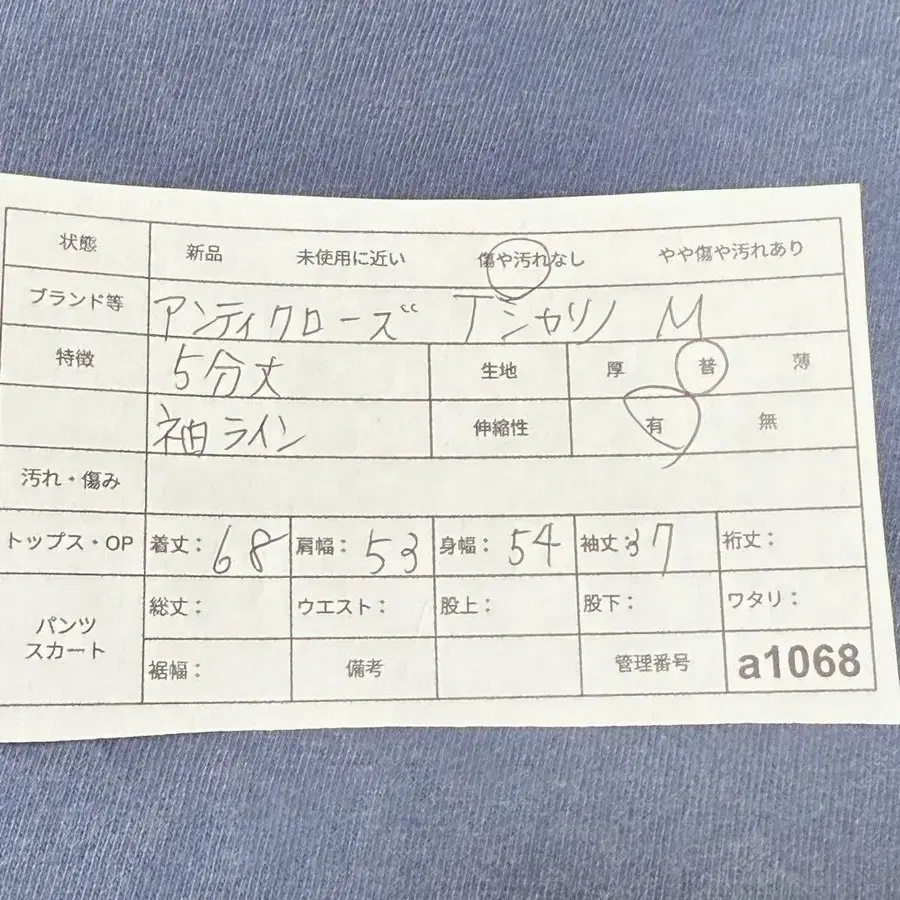 状態 新品 未使用に近い 傷や汚れなし やや傷や汚れあり
ブランド等 アンティクローズ Tシャツ M
特徴 5分丈 生地 厚 普 薄
袖ライン 伸縮性 有 無
汚れ・傷み
トップス・OP 着丈: 68 肩幅: 53 身幅: 54 袖丈: 37 裄丈:
パンツ スカート 総丈: ウエスト: 股上: 股下: ワタリ:
裾幅: 備考 管理番号 a1068